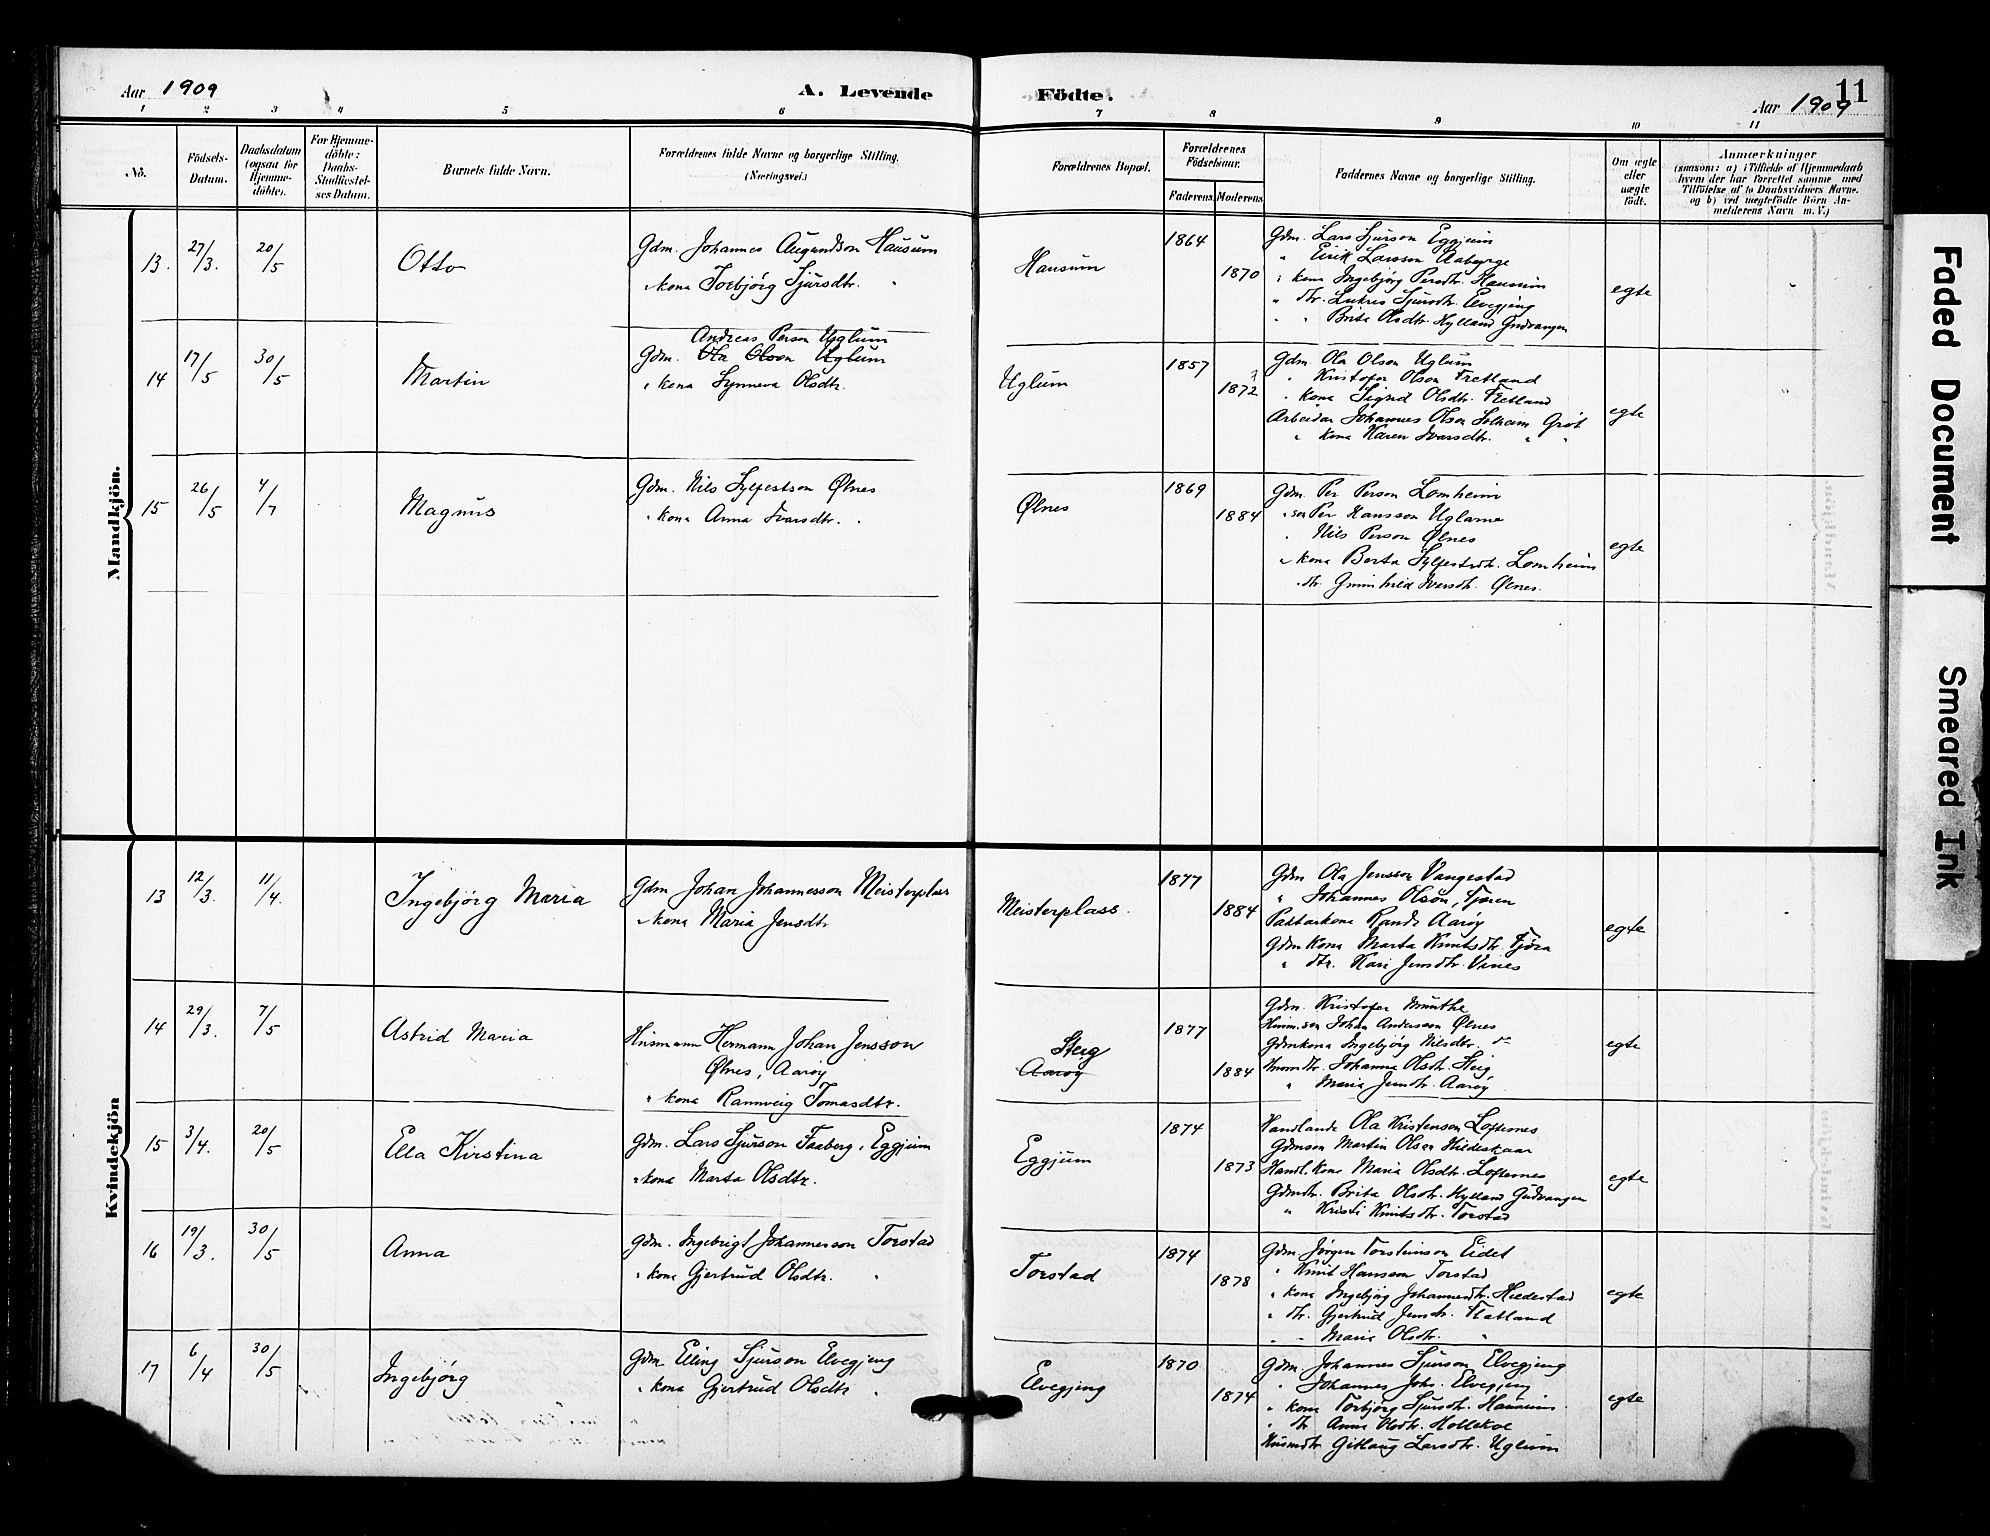 Aar 1909
A. Levende
Födte.
Aar 1909
11
1 2 3 4 5 6 7 8 9 10 11
No.
Födsels-Datum.
Daabsdatum (ogsaa for Hjemmedöbte).
For Hjemmedöbte: Daabs-Stadfæstelses Datum.
Barnets fulde Navn.
Forældrenes fulde Navne og borgerlige Stilling. (Næringsvei.)
Forældrenes Bopæl.
Forældrenes Födselsaar.
Faderens Moderens
Faddernes Navne og borgerlige Stilling.
Om ægte eller uægte födt.
Anmærkninger
(saasom: a) i Tilfælde af Hjemmedaab
hvem der har forrettet samme med
Tilföielse af to Daabsvidners Navne.
og b) ved uægtefödte Börn An-
melderens Navn m. V.)
Mandkjön.
13. 27/3. 20/5 Otto
Gdm. Johannes Augundson Hausum
" kona Torbjørg Sjursdtr. "
Hausum
1864
1870
Gdm. Lars Sjurson Eggjum
" Eirik Larsson Aaberge
" kona Ingebjørg Persdtr. Hausum
" dtr. Lukris Sjursdtr. Elvegjeng
" " Brita Olsdtr. Hylland Gudvangen
egte
14 17/5 30/5 Martin
Andreas Person Uglum
Gdm. Ola Olson Uglum
" kona Synneva Olsdtr.
Uglum
1857
1872
Gdm Ola Olson Uglum
" Kristofer Olson Fretland
" kona Sigrid Olsdtr. Fretland
Arbeidar Johannes Olson Solheim Grøt
" kona Karen Ivarsdtr. " "
egte
15 26/5 4/7 Magnus
Gdm. Nils Sylfestson Ølnes
" kona Anna Ivarsdtr. "
Ølnes
1869
1884
Gdm. Per Person Lomheim
" son Per Hansson Uglarne
" Nils Person Ølnes
" kona Berta Sylfestsdtr. Lomheim
" dtr. Gunnhild Ivarsdtr. Ølnes.
egte
Kvindekjön
13 12/3. 11/4. Ingebjørg Maria
Gdm Johan Johannesson Meisterplass
" kona Maria Jensdtr
Meisterplass.
1877
1884
Gdm Ola Jensson Vangestad
" Johannes Olson, Fjæren
Pakkarkona Randi Aarøy
Gdm kona Marta Knutsdtr. Fjøra
" dtr. Kari Jensdtr. Vines
egte
14 29/3. 7/5 Astrid Maria
Husmann Hermann Johan Jensson
Ølnes, Aarøy
" kona Rannveig Tomasdtr.
Steig
Aarøy
1877
1884
Gdm. Kristofer Munthe
Husm.son Johan Andersson Ølnes
Gdmkona Ingebjørg Nilsdtr.
Husmdtr. Johanna Olsdtr. Steig
" Maria Jensdtr. Aarøy
egte
15 3/4. 20/5 Ella Kirstina
Gdm. Lars Sjurson Faaberg, Eggjum
" kona Marta Olsdtr.
Eggjum
1874
1873
Handlande Ola Kristenson Loftesnes
Gdmson Martin Olson Hildeskaar
Handl. kona Maria Olsdtr. Loftesnes
Gdmdtr. Brita Olsdtr. Hylland Gudvangen
" Kristi Knutsdtr. Torstad
egte
16 19/3. 30/5 Anna
Gdm. Ingebrigt Johannesson Torstad
" kona Gjertrud Olsdtr. "
Torstad
1874
1878
Gdm Jørgen Torsteinson Eidet
" Knut Hansson Torstad
" kona Ingebjørg Johannesdtr. Hildestad
" dtr. Gjertrud Jensdtr. Flatland
" " Maria Olsdtr. "
egte
17 6/4 30/5 Ingebjørg
Gdm Elling Sjurson Elvegjeng
" kona Gjertrud Olsdtr "
Elvegjeng
1870
1874
Gdm. Johannes Sjurson Elvegjeng
" Johannes Johs. Elvegjeng
" kona Torbjørg Sjursdtr. Hausum
" dtr Anna Olsdtr. Hollekve
Husmdtr Gitlaug Larsdtr. Uglum
egte
Faded Document
Smeared Ink